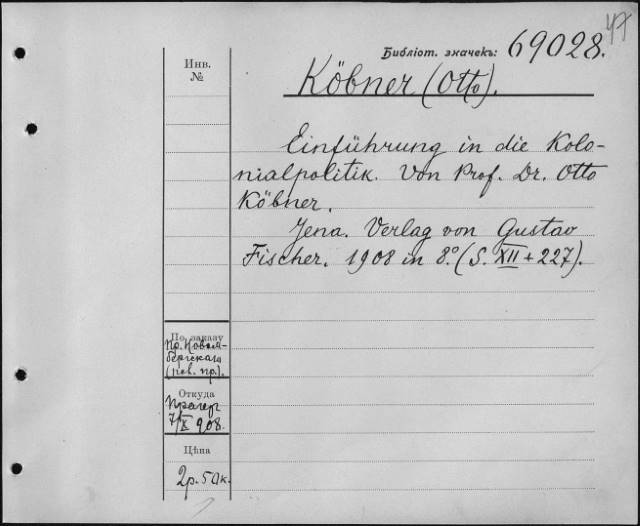 47
Библіот. значекъ: 69028.
Инв.
№
Köbner (Otto).
Einführung in die Kolo-
nialpolitik. Von Prof. Dr. Otto
Köbner.
Jena. Verlag von Gustav
Fischer. 1908 in 8.° (S. XII + 227).
По заказу
Пр. Новом-
бергскаго
(пов. пр.).
Откуда
Прагер
7/X 908.
Цѣна
2р. 50к.